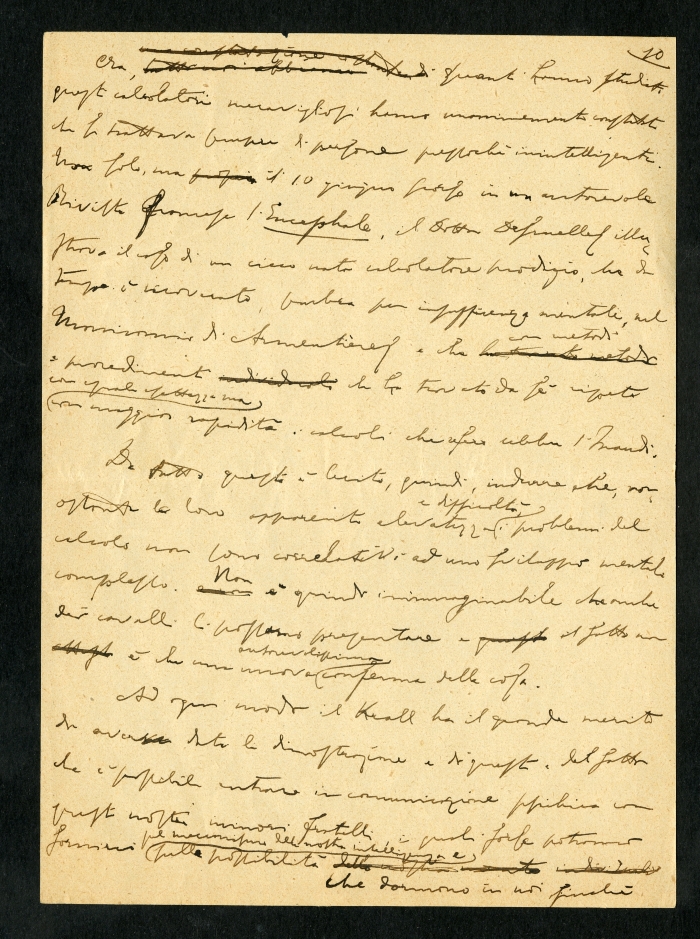 10
Ora, di quanti hanno studiato
questi calcolatori meravigliosi hanno unanimemente constatato
che si trattava sempre di persone pressoché inintelligenti.
Non solo, ma il 10 giugno scorso in un autorevole
Rivista francese l'Encephale, il Dottor illu-
strava il caso di un cieco nato calcolatore prodigio, che da
tempo è ricoverato, per insufficienza mentale, nel
Manicomio di Armentières e che
con metodi
e procedimenti individuali che ha trovato da sé ripete
con eguale esattezza ma
con maggior rapidità i calcoli che resero celebre l'Inaudi.
Da tutto questo è lecito, quindi, indurre che, non-
ostante la loro apparente elevatezza i problemi del
e difficoltà
calcolo non sono correlativi ad uno sviluppo mentale
complesso. Non è quindi inimmaginabile che anche
dei cavalli li possano presentare e il fatto non
è che una nuova conferma della cosa.
autorevolissima
Ad ogni modo il Krall ha il grande merito
di aver dato la dimostrazione e di questo e del fatto
che è possibile entrare in comunicazione psichica con
questi nostri minori fratelli i quali forse potranno
fornirci sulla possibilità
pel meccanismo della nostra intelligenza e
che dormono in noi